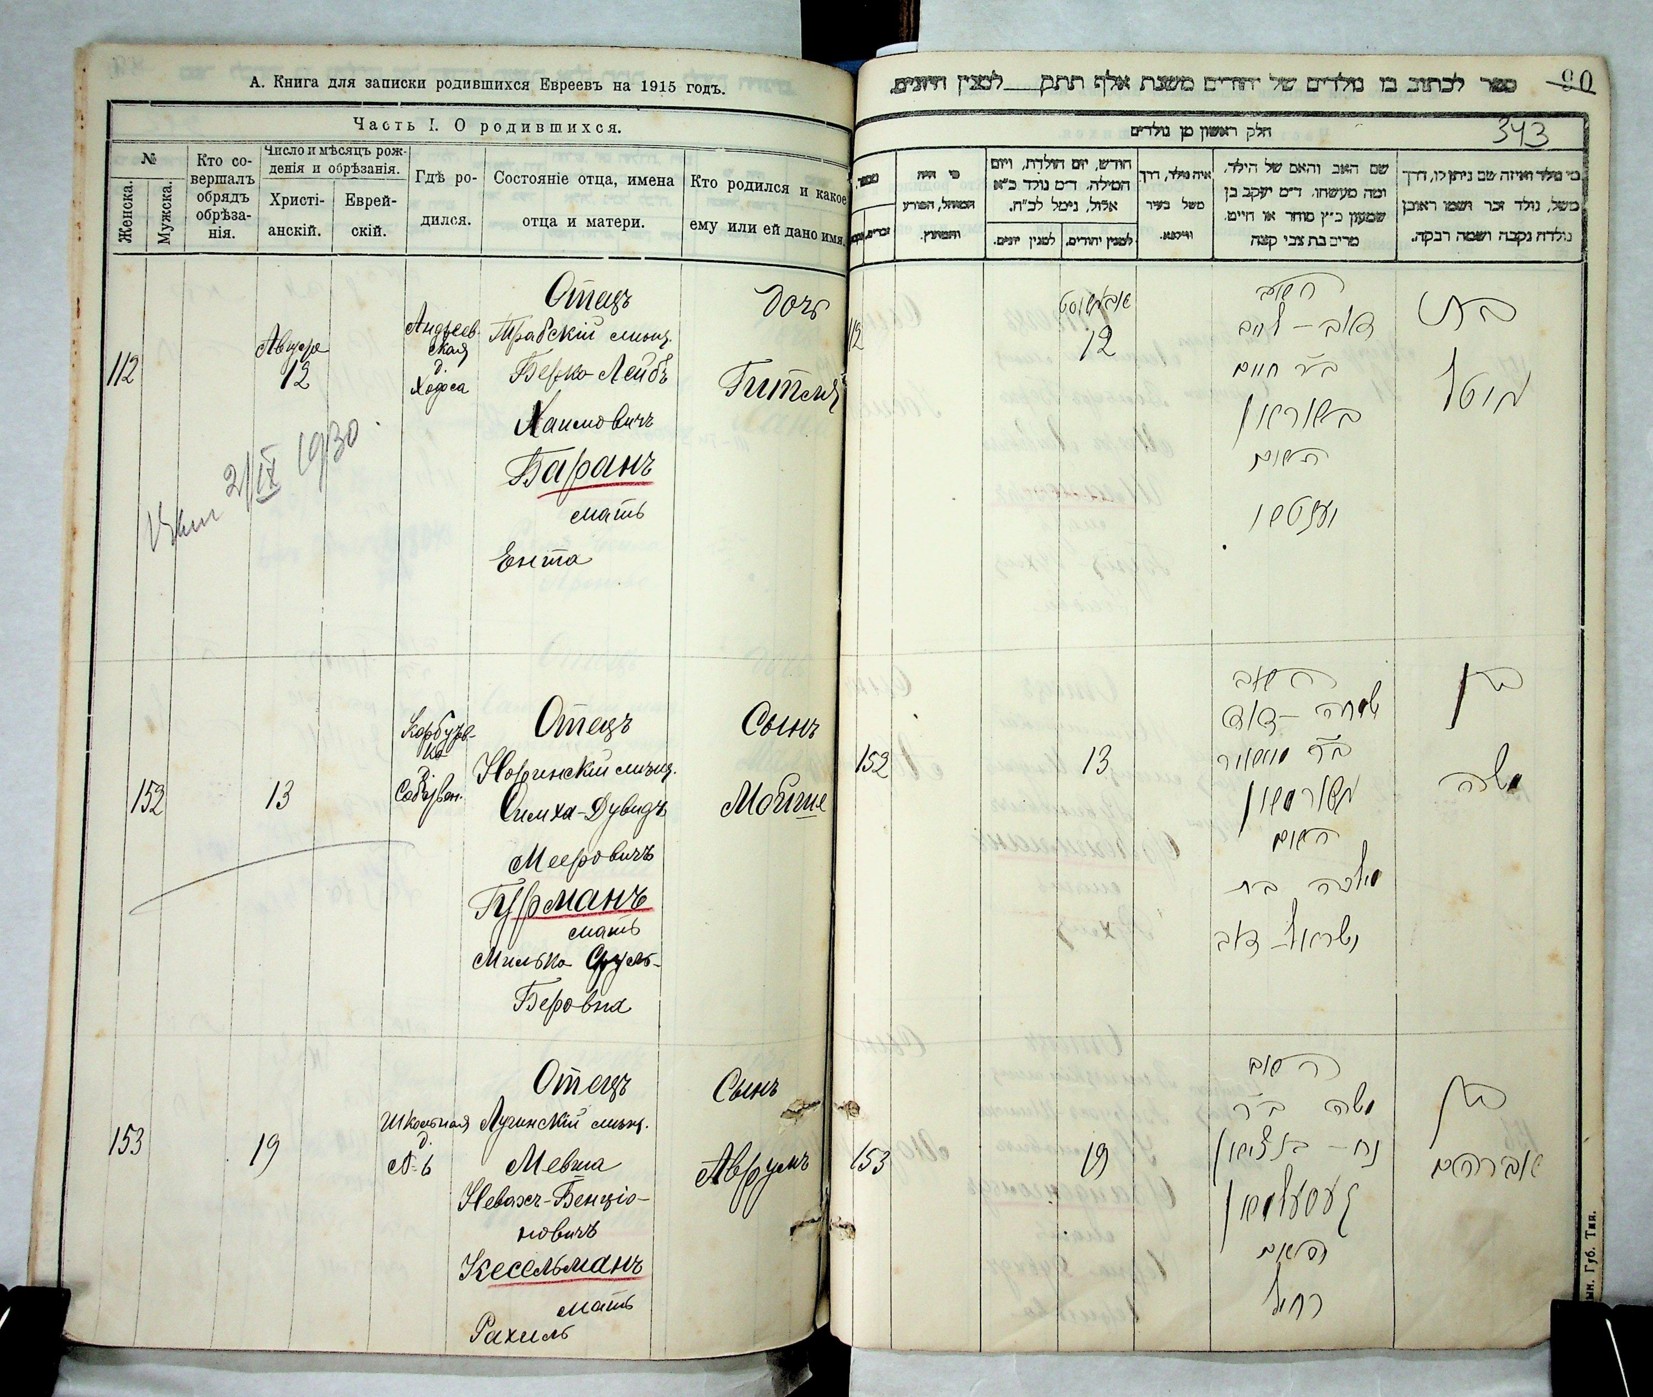 А. Книга для записки родившихся Евреевъ на 1915 годъ.
Часть I. О родившихся.
№
Женска.
Мужска.
Кто со-
вершалъ
обрядъ
обрѣза-
нія.
Число и мѣсяцъ рож-
денія и обрѣзанія.
Христі-
анскій.
Еврей-
скій.
Гдѣ ро-
дился.
Состояніе отца, имена
отца и матери.
Кто родился и какое
ему или ей дано имя.
112
Августа
12
Андреев-
ская
д.
Ходоса
Отецъ
мѣщ.
Берко-Лейбъ
Хаимовичъ
Баранъ
мать
Ента
Дочь
Гитля
2/IX 1930.
152
13
Отецъ
Норинскій мѣщ.
Симха-Дувидъ
Мееровичъ
Гурманъ
мать
Милька Сруль-
Беровна
Сынъ
Мойше
153
19
Школьная
д.
№ 6
Отецъ
Лугинскій мѣщ.
Мевша
Невах-Бенціо-
новичъ
Кесельманъ
мать
Рахиль
Сынъ
Аврумъ
ספר לכתוב בו נולדים של יהודים משנת אלף תתק למנין היונים.
90
חלק ראשון מן נולדים
343
מי היה
המוהל, הפורע
והמוצץ.
חודש, יום הולדת, ויום
המילה. ד״מ נולד כ״א
אלול, נימל לכ״ח.
למנין יהודים.
למנין יונים.
איה נולד, דרך
משל בעיר
ווילנא.
שם האב והאם של הילד,
ומה מעשהו. ד״מ יעקב בן
שמעון כ״ץ סוחר או חייט.
מרים בת צבי קצה
מי נולד ואיזה שם ניתן לו, דרך
משל, נולד זכר ושמו ראובן
נולדה נקבה ושמה רבקה.
112
אויגוסט
12
האב
דוב-ליב
ב״ר חיים
באראן
האם
יענטא
בת
גיטל
152
13
האב
שמחה-דוד
ב״ר מאיר
גורמאן
האם
מילכה בת
ישראל-דוב
בן
משה
153
19
האב
משה ב״ר
נח-בנציון
קעסעלמאן
האם
רחל
בן
אברהם
Губ. Тип.